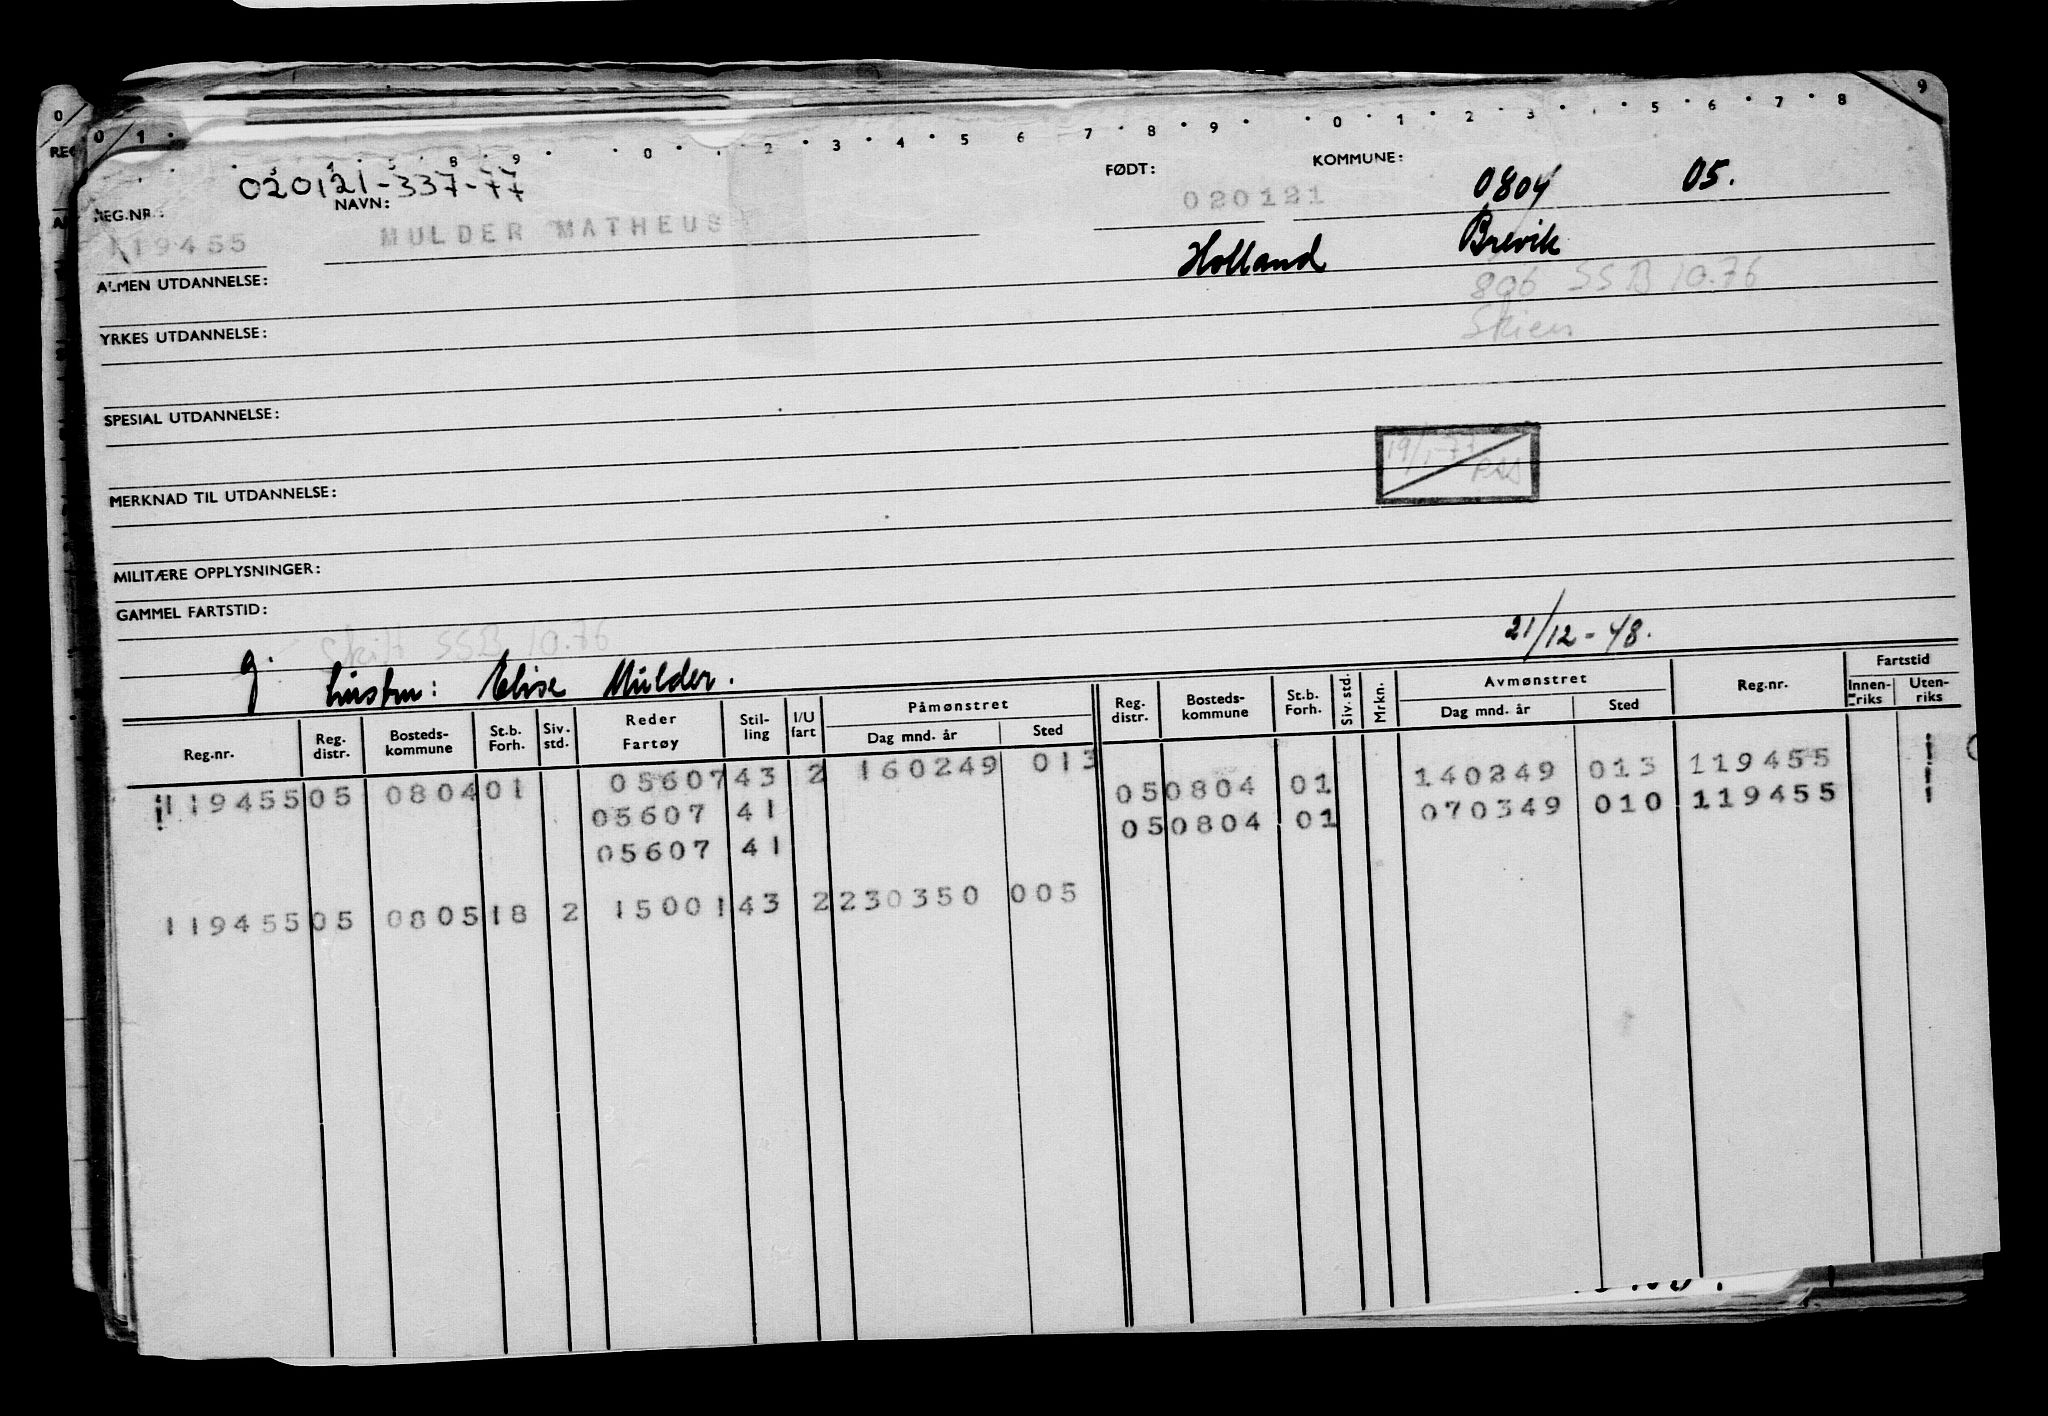 0 1 2 3 4 5 6 7 8 9 0 1 2 3 5 6 7 8 9
020121-337-77
REG.NR.: NAVN: FØDT: KOMMUNE:
119455 MULDER MATHEUS 020121 0804 05.
Holland Brevik
ALMEN UTDANNELSE:
806 SSB 10.76
Skien
YRKES UTDANNELSE:
SPESIAL UTDANNELSE:
19/1-77
MERKNAD TIL UTDANNELSE:
MILITÆRE OPPLYSNINGER:
GAMMEL FARTSTID:
Skift SSB 10.76
21/12-48.
g. hustru: Elise Mulder.
Reg.nr. Reg. distr. Bosteds-kommune St.b. Forh. Siv. std. Reder Fartøy Stil-ling I/U fart Påmønstret Dag mnd. år Sted Reg. distr. Bosteds-kommune St.b. Forh. Siv. std. Mrkn. Avmønstret Dag mnd. år Sted Reg.nr. Fartstid Innen-riks Uten-riks
119455 05 0804 01 05607 43 2 160249 013
05607 41 050804 01 140249 013 119455
05607 41 050804 01 070349 010 119455
119455 05 0805 18 2 15001 43 2 230350 005